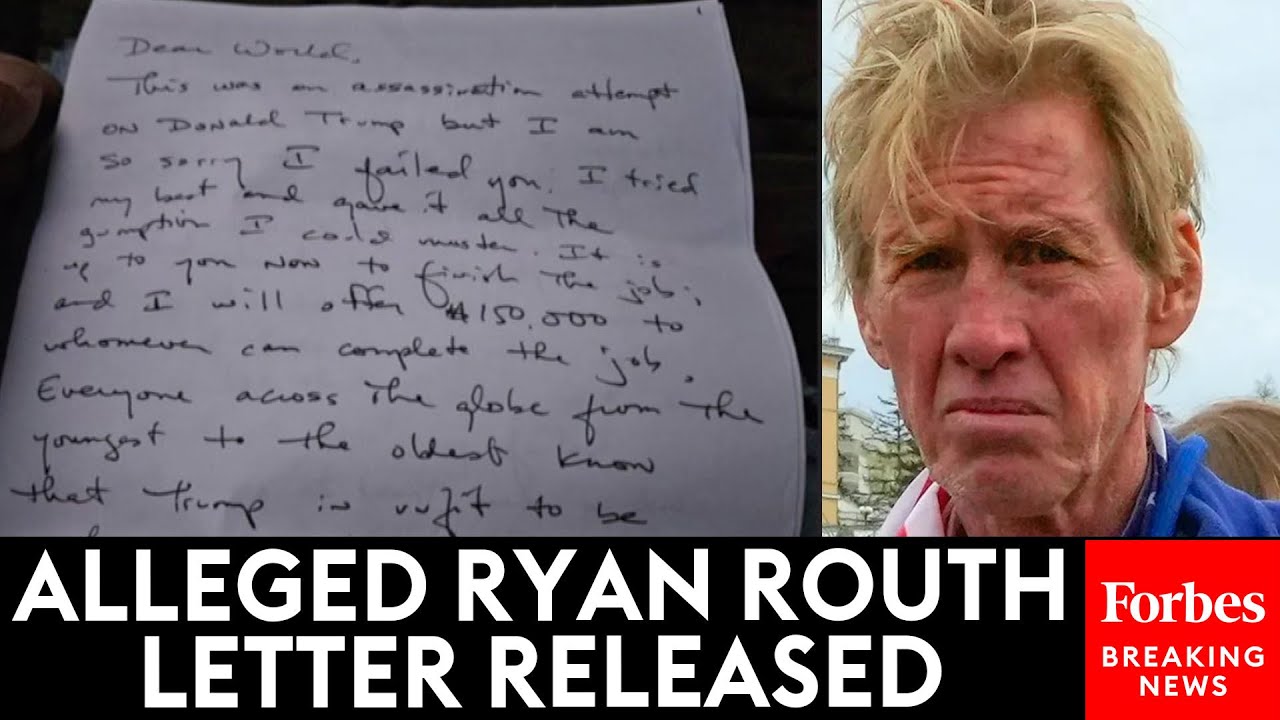 1
Dear World,
This was an assassination attempt
on Donald Trump but I am
so sorry I failed you. I tried
my best and gave it all the
gumption I could muster. It is
up to you now to finish the job;
and I will offer $150,000 to
whomever can complete the job.
Everyone across the globe from the
youngest to the oldest know
that Trump is unfit to be
ALLEGED RYAN ROUTH
LETTER RELEASED
Forbes
BREAKING
NEWS